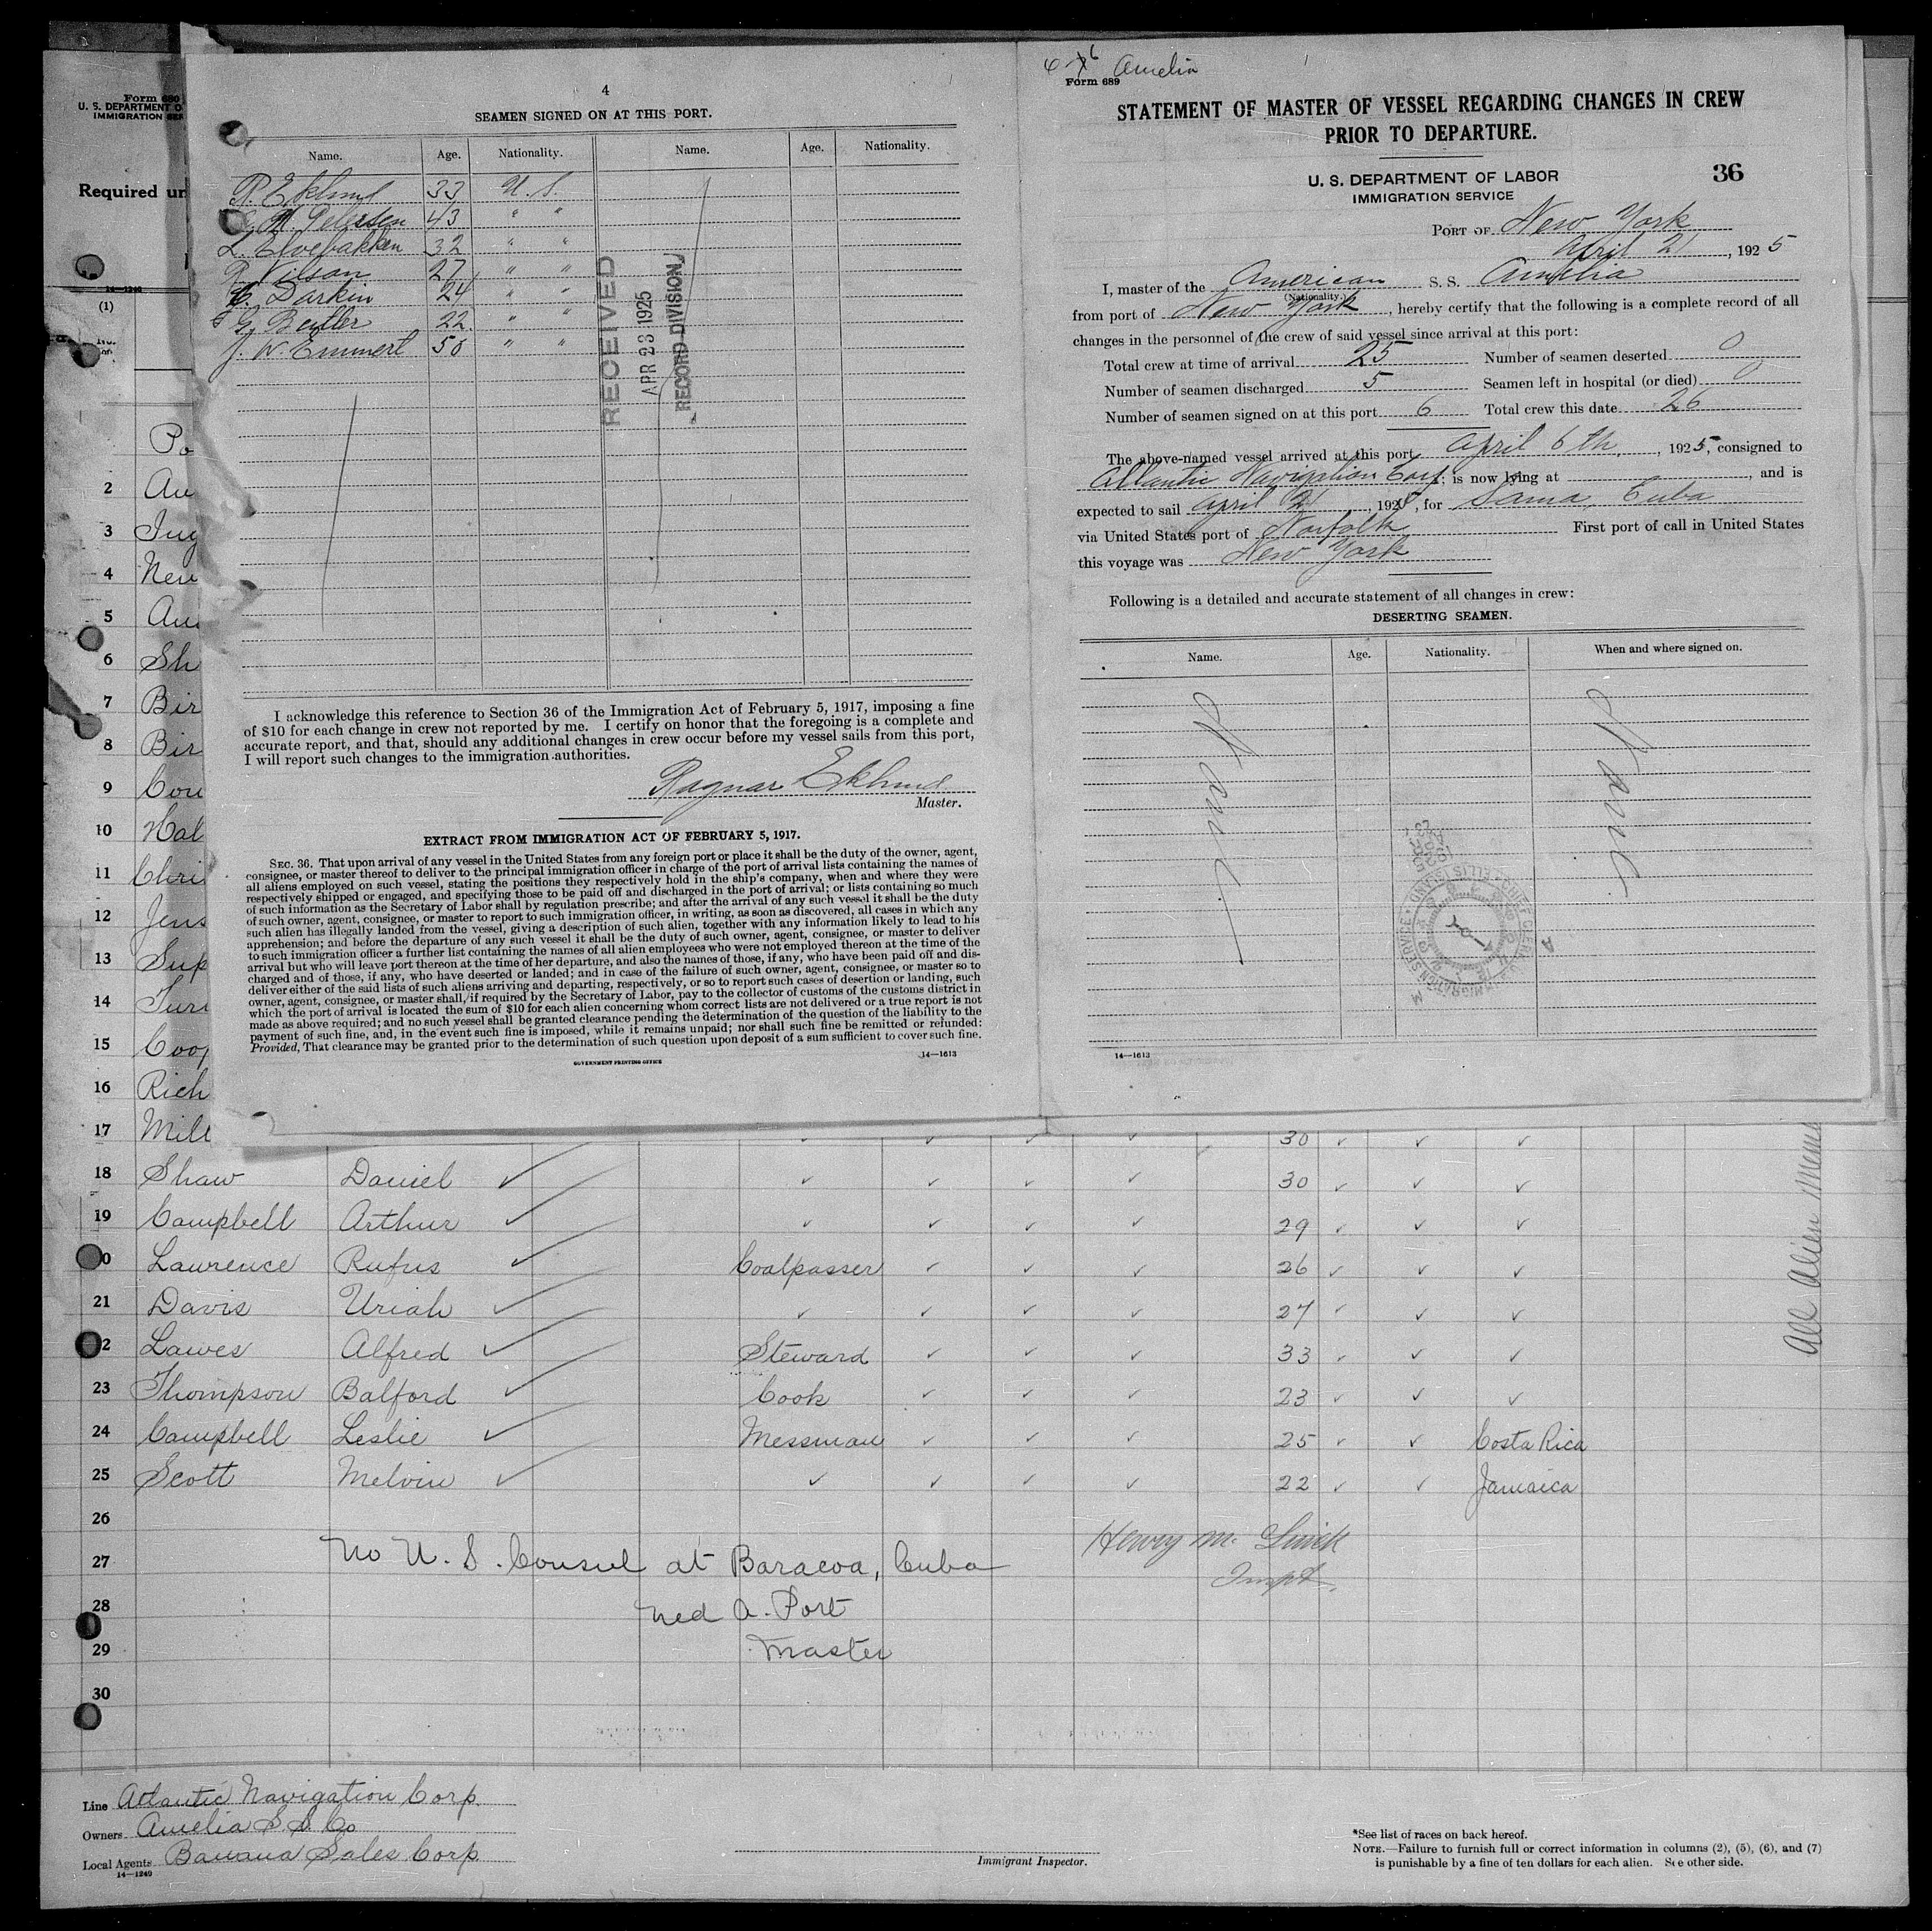 Form 680
U. S. DEPARTMENT O
IMMIGRATION SER
Required un
14—1240
(1)
4
SEAMEN SIGNED ON AT THIS PORT.
Name. Age. Nationality. Name. Age. Nationality.
R. Eklund 33 U. S.
M. Petersen 43 " "
L. Elvebakken 32 " "
R. Nilsan 27 " "
Darkin 24 " "
G. Beitler 22 " "
J. W. Emmert 50 " "
RECEIVED
APR 23 1925
RECORD DIVISION
I acknowledge this reference to Section 36 of the Immigration Act of February 5, 1917, imposing a fine
of $10 for each change in crew not reported by me. I certify on honor that the foregoing is a complete and
accurate report, and that, should any additional changes in crew occur before my vessel sails from this port,
I will report such changes to the immigration authorities.
Ragnar Eklund
Master.
EXTRACT FROM IMMIGRATION ACT OF FEBRUARY 5, 1917.
SEC. 36. That upon arrival of any vessel in the United States from any foreign port or place it shall be the duty of the owner, agent,
consignee, or master thereof to deliver to the principal immigration officer in charge of the port of arrival lists containing the names of
all aliens employed on such vessel, stating the positions they respectively hold in the ship's company, when and where they were
respectively shipped or engaged, and specifying those to be paid off and discharged in the port of arrival; or lists containing so much
of such information as the Secretary of Labor shall by regulation prescribe; and after the arrival of any such vessel it shall be the duty
of such owner, agent, consignee, or master to report to such immigration officer, in writing, as soon as discovered, all cases in which any
such alien has illegally landed from the vessel, giving a description of such alien, together with any information likely to lead to his
apprehension; and before the departure of any such vessel it shall be the duty of such owner, agent, consignee, or master to deliver
to such immigration officer a further list containing the names of all alien employees who were not employed thereon at the time of the
arrival but who will leave port thereon at the time of her departure, and also the names of those, if any, who have been paid off and dis-
charged and of those, if any, who have deserted or landed; and in case of the failure of such owner, agent, consignee, or master so to
deliver either of the said lists of such aliens arriving and departing, respectively, or so to report such cases of desertion or landing, such
owner, agent, consignee, or master shall, if required by the Secretary of Labor, pay to the collector of customs of the customs district in
which the port of arrival is located the sum of $10 for each alien concerning whom correct lists are not delivered or a true report is not
made as above required; and no such vessel shall be granted clearance pending the determination of the question of the liability to the
payment of such fine, and, in the event such fine is imposed, while it remains unpaid; nor shall such fine be remitted or refunded:
Provided, That clearance may be granted prior to the determination of such question upon deposit of a sum sufficient to cover such fine.
GOVERNMENT PRINTING OFFICE 14—1613
Amelia
Form 689
STATEMENT OF MASTER OF VESSEL REGARDING CHANGES IN CREW
PRIOR TO DEPARTURE.
U. S. DEPARTMENT OF LABOR
IMMIGRATION SERVICE
36
PORT OF New York
April 21, 1925
I, master of the American S. S. Amelia
(Nationality.)
from port of New York, hereby certify that the following is a complete record of all
changes in the personnel of the crew of said vessel since arrival at this port:
Total crew at time of arrival 25 Number of seamen deserted 0
Number of seamen discharged 5 Seamen left in hospital (or died) 0
Number of seamen signed on at this port 6 Total crew this date 26
The above-named vessel arrived at this port April 6th, 1925, consigned to
Atlantic Navigation Corp; is now lying at , and is
expected to sail April 21, 1925, for Sama, Cuba
via United States port of Norfolk First port of call in United States
this voyage was New York
Following is a detailed and accurate statement of all changes in crew:
DESERTING SEAMEN.
Name. Age. Nationality. When and where signed on.
None None
14—1613
Po
2 Au
3 Ing
4 New
5 Au
6 Sh
7 Bir
8 Bir
9 Cou
10 Hal
11 Chri
12 Jens
13 Sup
14 Turn
15 Coop
16 Rich
17 Mill 30
18 Shaw Daniel 30
19 Campbell Arthur 29
20 Lawrence Rufus Coalpasser 26
21 Davis Uriah 27
22 Lawes Alfred Steward 33
23 Thompson Balford Cook 23
24 Campbell Leslie Messman 25 Costa Rica
25 Scott Melvin 22 Jamaica
26
27 No U. S. Consul at Baracoa, Cuba
28 Ned A. Port
29 Master
30
Henry M.
Inspt.
All Alien Mem
Line Atlantic Navigation Corp.
Owners Amelia S. S. Co
Local Agents Banana Sales Corp
14—1240
Immigrant Inspector.
*See list of races on back hereof.
NOTE.—Failure to furnish full or correct information in columns (2), (5), (6), and (7)
is punishable by a fine of ten dollars for each alien. See other side.